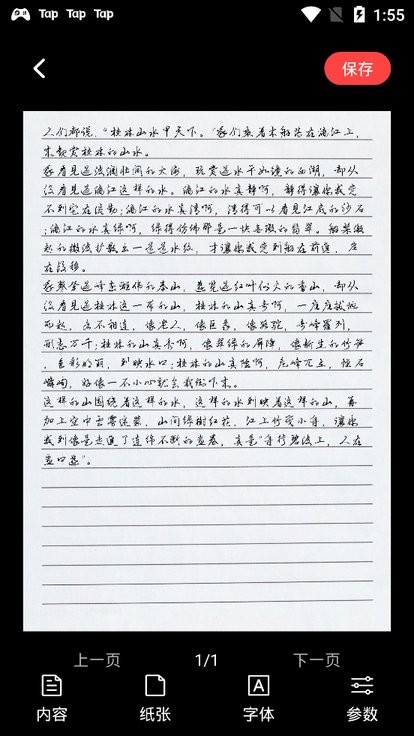 Tap Tap Tap
1:55
保存
人们都说："桂林山水甲天下。"我们乘着木船荡在漓江上，
来观赏桂林的山水。
我看见过波澜壮阔的大海，玩赏过水平如镜的西湖，却从
没看见过漓江这样的水。漓江的水真静啊，静得让你感受
不到它在流动；漓江的水真清啊，清得可以看见江底的沙石
；漓江的水真绿啊，绿得仿佛那是一块无瑕的翡翠。船桨激
起的微波扩散出一道道水纹，才让你感觉到船在前进，岸
在后移。
我攀登过峰峦雄伟的泰山，游览过红叶似火的香山，却从
没看见过桂林这一带的山，桂林的山真奇啊，一座座拔地
而起，各不相连，像老人，像巨象，像骆驼，奇峰罗列，
形态万千；桂林的山真秀啊，像翠绿的屏障，像新生的竹笋
，色彩明丽，倒映水中；桂林的山真险啊，危峰兀立，怪石
嶙峋，好像一不小心就会栽倒下来。
这样的山围绕着这样的水，这样的水倒映着这样的山，再
加上空中云雾迷蒙，山间绿树红花，江上竹筏小舟，让你
感到像是走进了连绵不断的画卷，真是"舟行碧波上，人在
画中游"。
上一页 1/1 下一页
内容 纸张 字体 参数